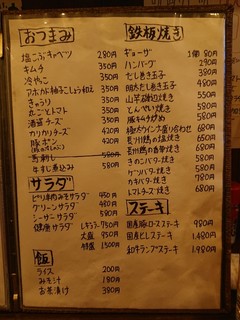 おつまみ
塩こぶキャベツ 280円
キムチ 350円
冷やっこ 350円
アボカド柚子こしょう和え 350円
きゅうり 350円
丸ごとトマト 350円
酒盗チーズ 350円
カリカリチーズ 420円
豚ポン 580円
馬刺し 580円
牛すじ煮込み 580円
サラダ
ピリ辛肉みそサラダ 480円
グリーンサラダ 480円
シーザーサラダ 580円
健康サラダ レギュラー 780円
大盛 980円
特盛 1300円
飯
ライス 200円
みそ汁 180円
お茶漬け 380円
鉄板焼き
ギョーザ 1個 80円
ハンバーグ 290円
だし巻き玉子 380円
明太だし巻き玉子 480円
山芋 550円
とんぺい焼き 580円
豚キムチ炒め 580円
ウインナー盛り合わせ 680円
680円
きのこバター焼き 580円
バター焼き 680円
カキバター焼き 780円
トマトチーズ焼き 680円
ステーキ
国産豚ロースステーキ 980円
国産ヒレステーキ 1,480円
和牛ランプステーキ 1,980円